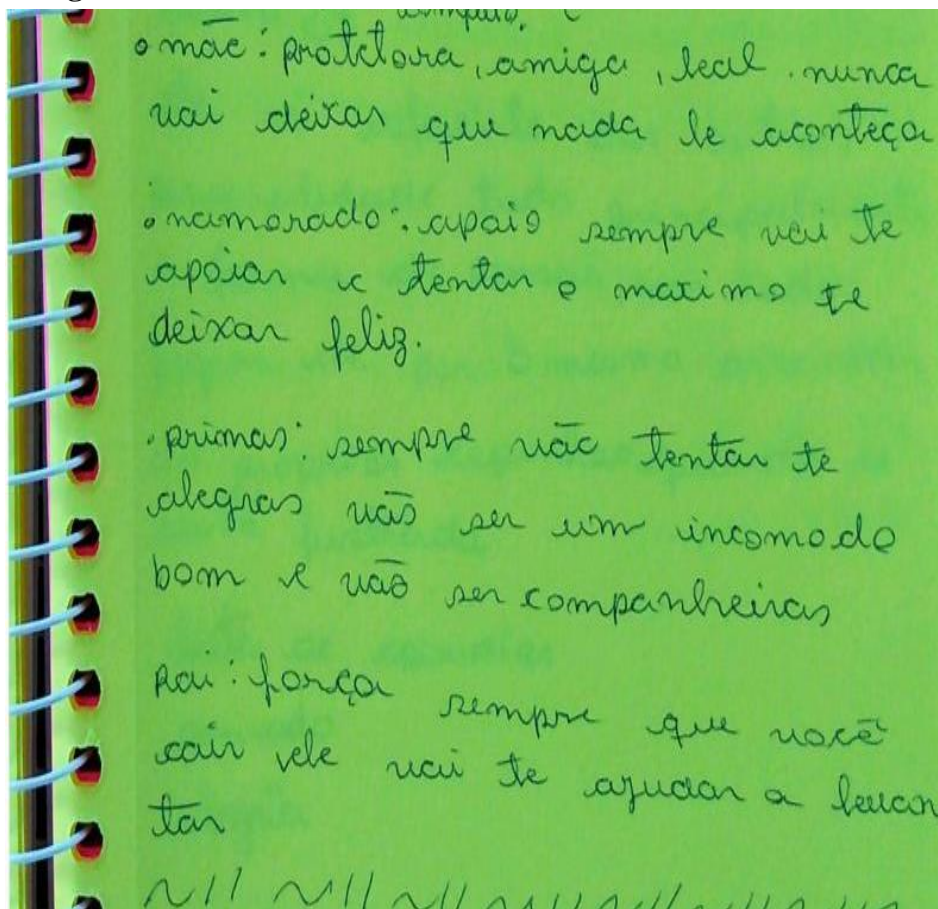 mãe: protetora, amiga, leal. nunca
vai deixar que nada le aconteça
namorado: apoio sempre vai te
apoiar e tentar o maximo te
deixar feliz.
primas: sempre vão tentar te
alegras vão ser um incomodo
bom e vão ser companheiras
Pai: força sempre que você
cair ele vai te ajudar a levan
tar